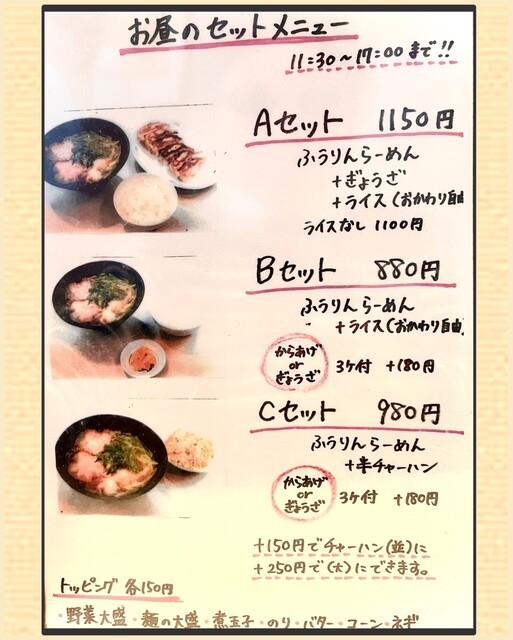 お昼のセットメニュー
11:30～17:00まで!!
Aセット 1150円
ふうりんらーめん
+ぎょうざ
+ライス(おかわり自由
ライスなし 1100円
Bセット 880円
ふうりんらーめん
+ライス(おかわり自由)
からあげ
or
ぎょうざ
3ケ付 +180円
Cセット 980円
ふうりんらーめん
+半チャーハン
からあげ
or
ぎょうざ
3ケ付 +180円
+150円でチャーハン(並)に
+250円で(大)にできます。
トッピング 各150円
・野菜大盛・麺の大盛・煮玉子・のり・バター・コーン・ネギ